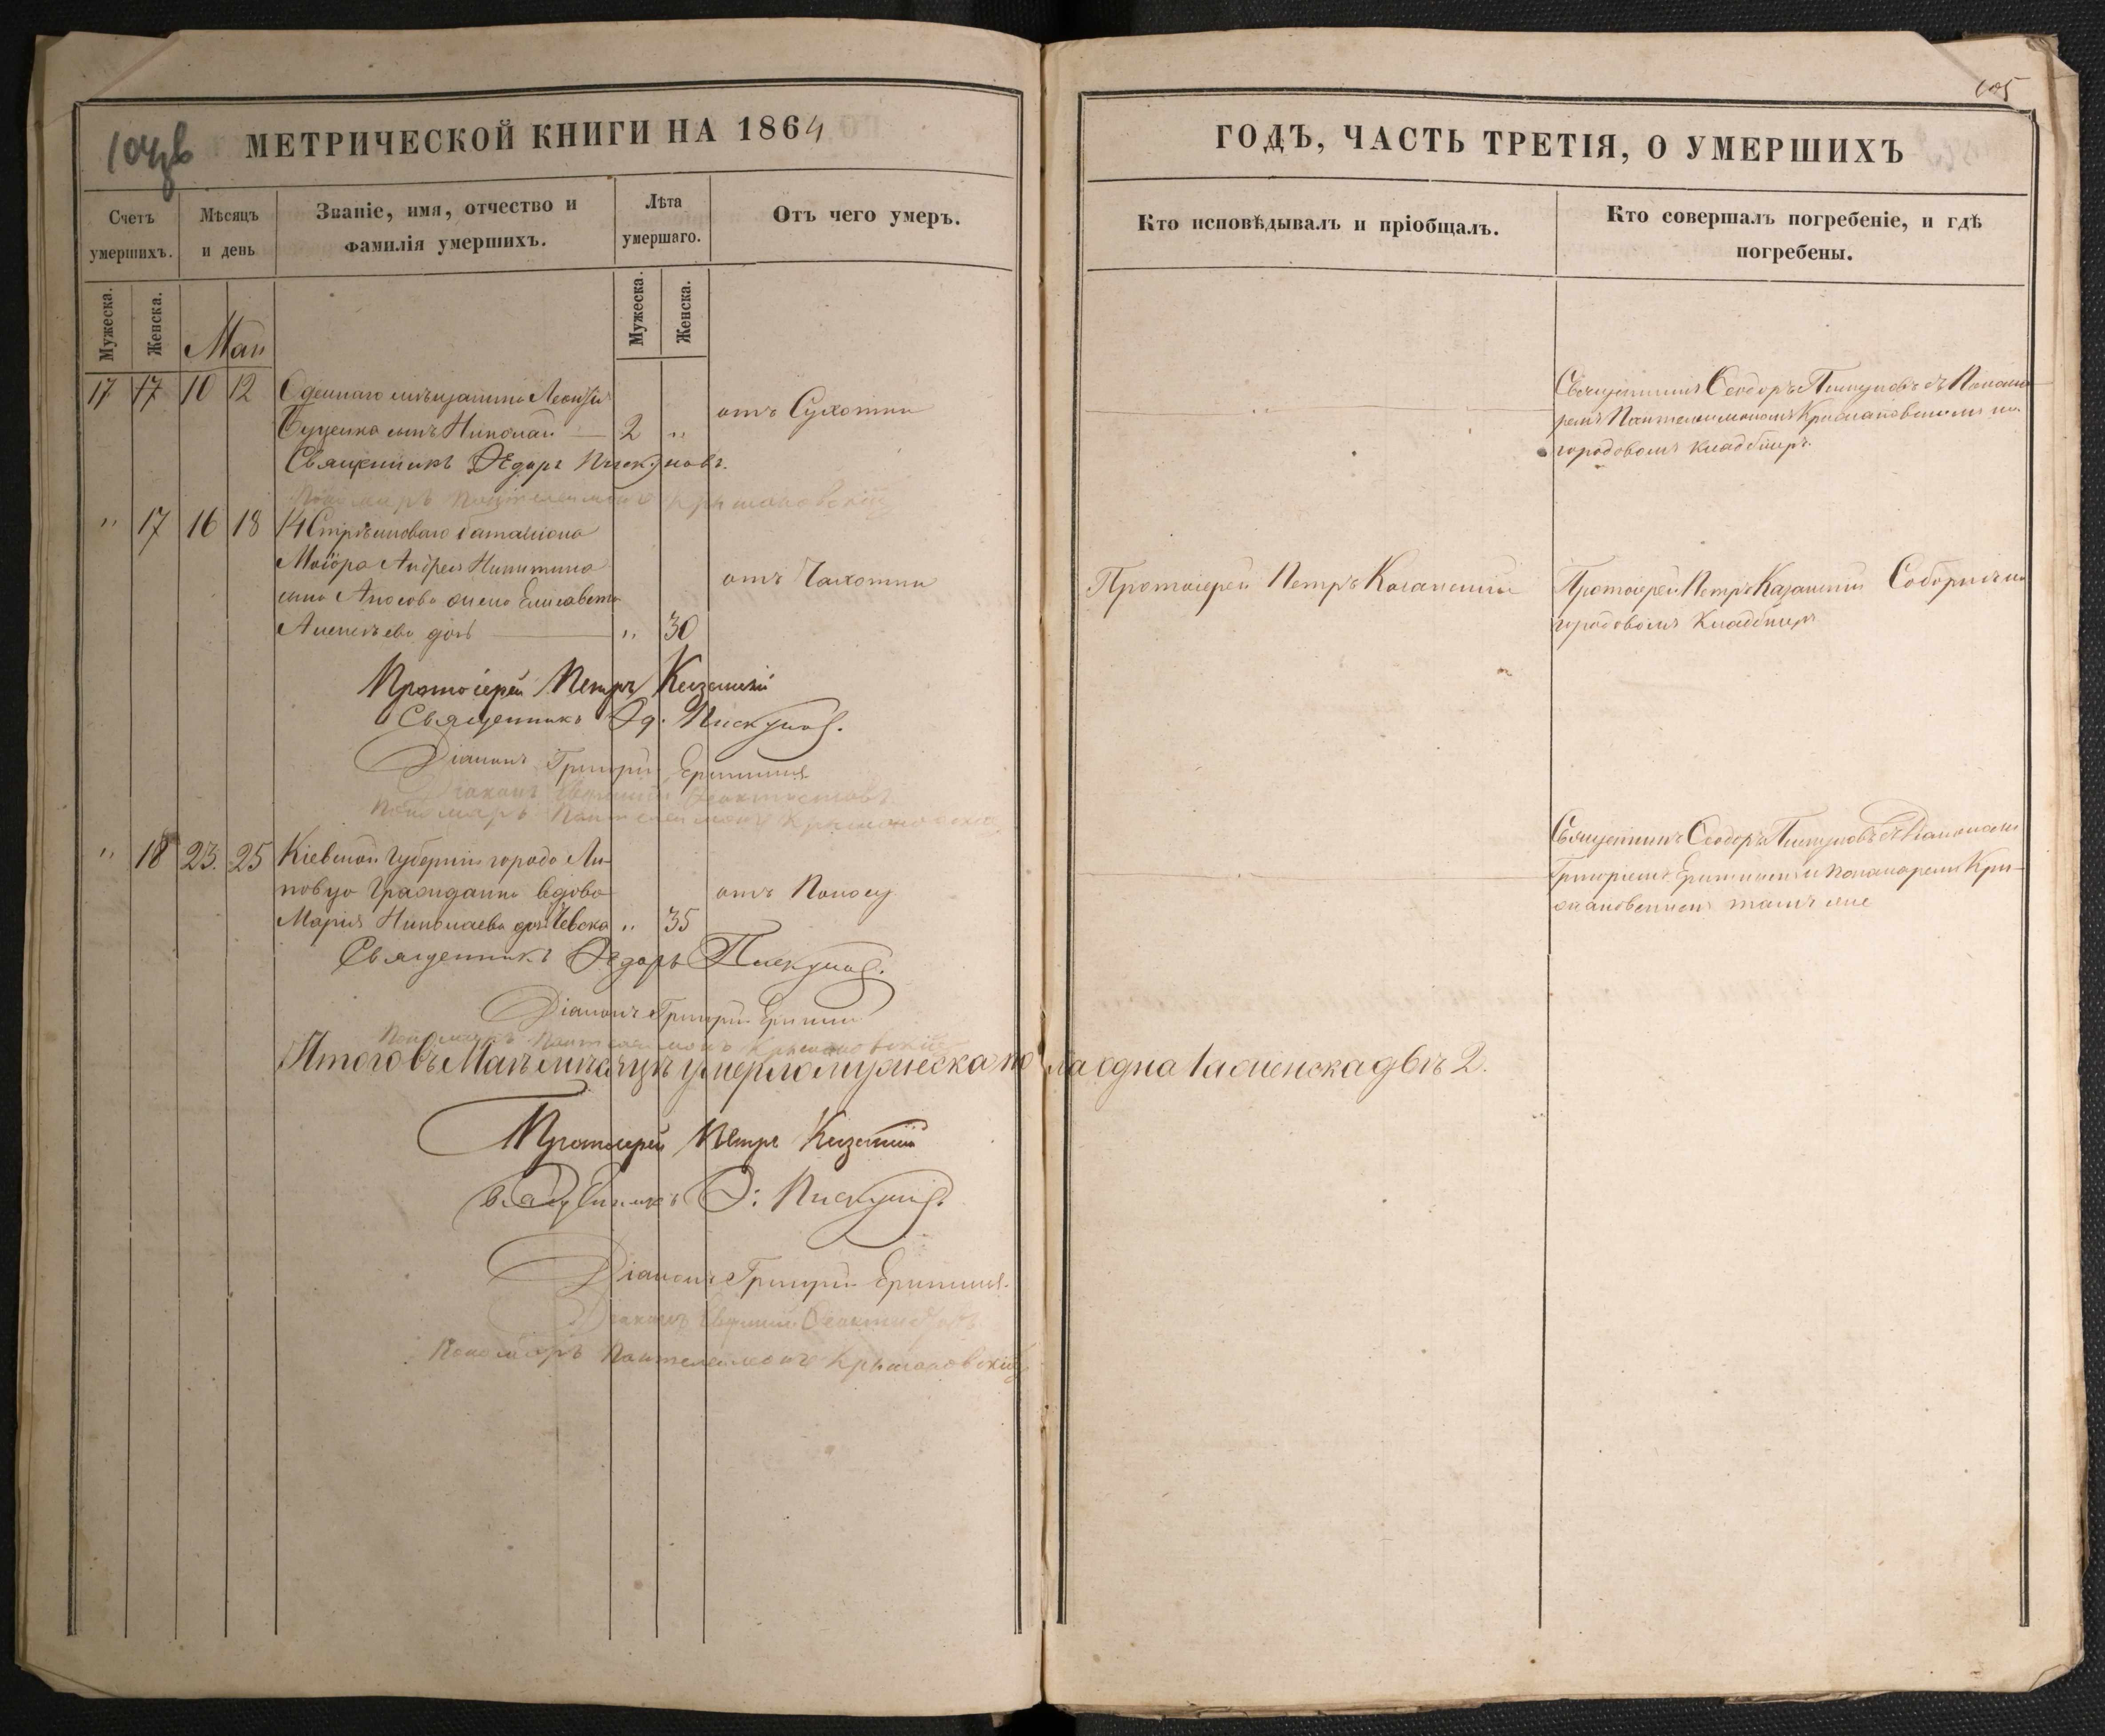 105
МЕТРИЧЕСКОЙ КНИГИ НА 1864
ГОДЪ, ЧАСТЬ ТРЕТІЯ, О УМЕРШИХЪ
Счетъ умершихъ.
Мѣсяцъ и день
Званіе, имя, отчество и
фамилія умершихъ.
Лѣта умершаго.
Отъ чего умеръ.
Кто исповѣдывалъ и пріобщалъ.
Кто совершалъ погребеніе, и гдѣ
погребены.
Мужеска.
Женска.
Мужеска.
Женска.
Маи
17 17 10 12 Одеcкаго мѣщанина Леонтія
Буценка сынъ Николай — 2 "
отъ Сухотки
Священникъ Ѳеодоръ Пискуновъ съ Понама-
ремъ Пантелеимономъ Крыжановскимъ на
городовомъ кладбищѣ.
Священникъ Ѳедоръ Пискуновъ.
Пономарь Пантелеимонъ Крыжановскій
" 17 16 18 14 Стрѣлковаго баталіона
Маіора Андрея Никитина
сына Аносова жена Елисавета
Алексѣева дочь — " 30
отъ Чахотки
Протоіерей Петръ Казанскій
Протоіерей Петръ Казанскій Соборнѣ на
городовомъ Кладбищѣ
Протоіерей Петръ Казанскій
Священникъ Ѳ. Пискуновъ.
Діаконъ Григорій
Діаконъ Евфимій Ѳеоктистовъ
Пономарь Пантелеимонъ Крыжановскій
" 18 23. 25 Кіевской Губерніи города Ли-
повца Гражданка вдова
Марія Николаева дочь " 35
отъ Поносу
Священникъ Ѳеодоръ Пискуновъ съ Діакономъ
Григоріемъ и понамаремъ Кры-
жановскимъ тамъ же
Священникъ Ѳедоръ Пискуновъ.
Діаконъ Григорій
Пономарь Пантелеимонъ Крыжановскій
Итого въ Маѣ мѣсяцѣ умерло мужеска пола одна 1 а женска двѣ 2.
Протоіерей Петръ Казанскій
Священникъ Ѳ: Пискуновъ.
Діаконъ Григорій
Діаконъ Евфимій Ѳеоктистовъ
Пономарь Пантелеимонъ Крыжановскій